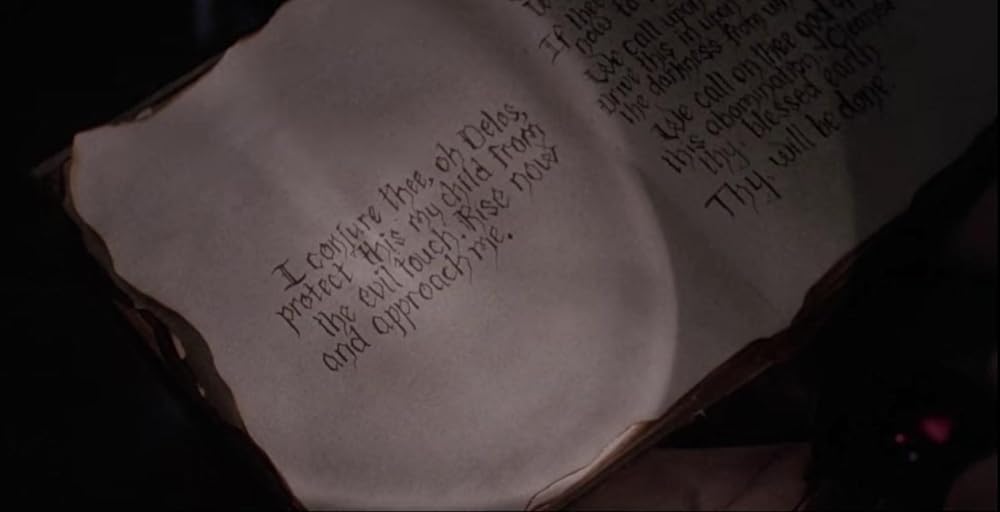 I conjure thee, oh Delos,
protect this my child from
the evil touch. Rise now
and approach me.
If thee
now to
We call upon
the darkness from
We call on thee god of
this abomination. Cleanse
thy blessed earth.
Thy will be done.